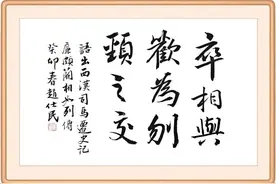 卒相與
歡為刎
頸之交
語出西漢司馬遷史記
廉頗藺相如列傳
癸卯春趙仕民